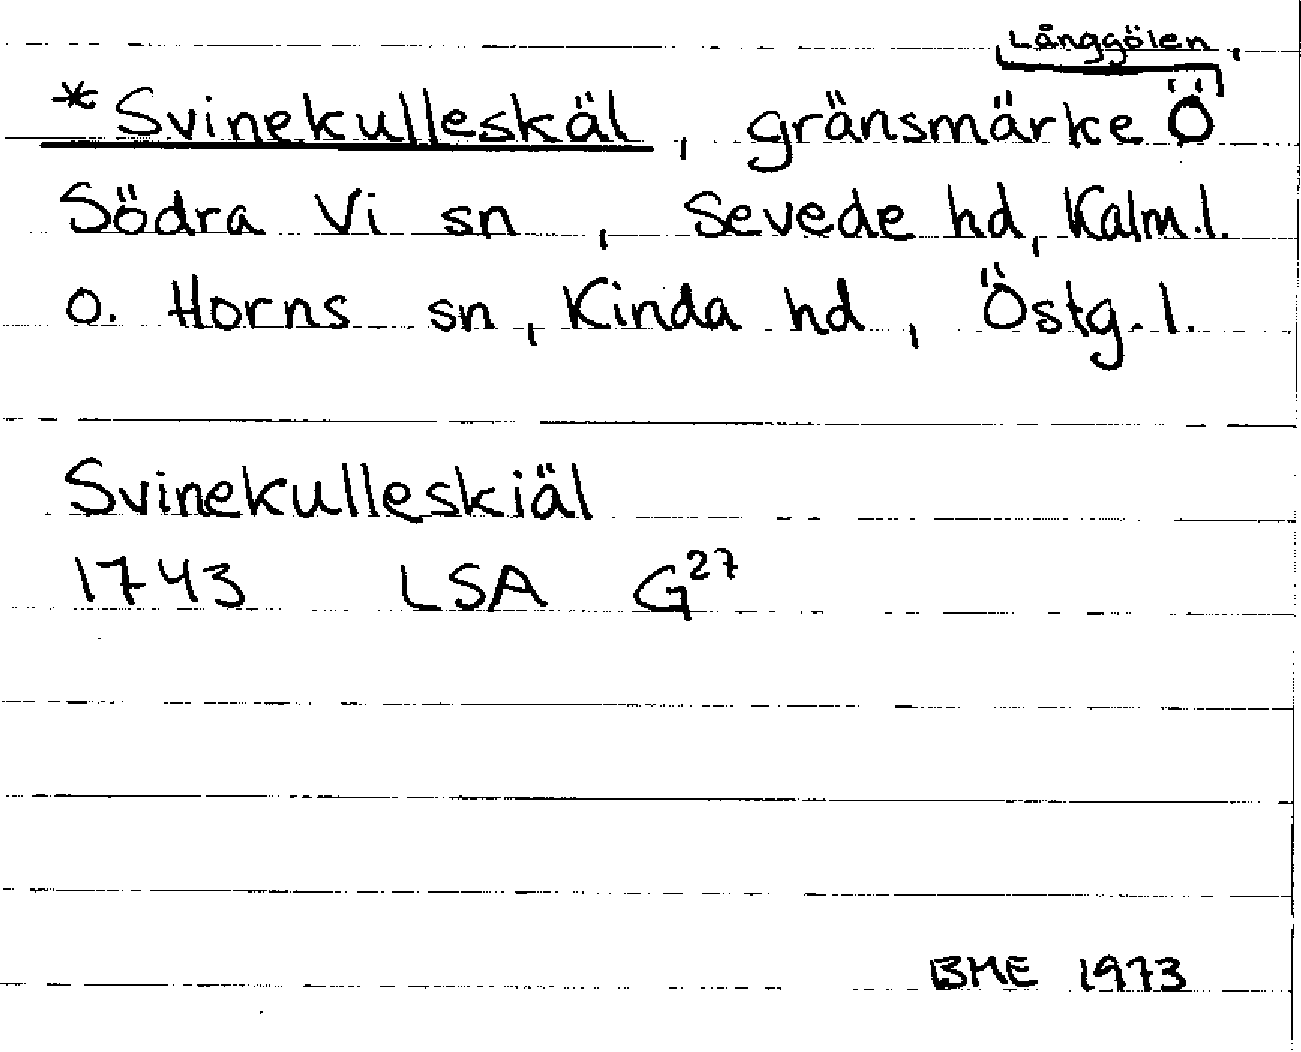 Långgölen,
*Svinekulleskäl, gränsmärke Ö
Södra Vi sn, Sevede hd, Kalm.l.
o. Horns sn, Kinda hd, Östg.l.
Svinekulleskiäl
1743 LSA G27
BME 1973